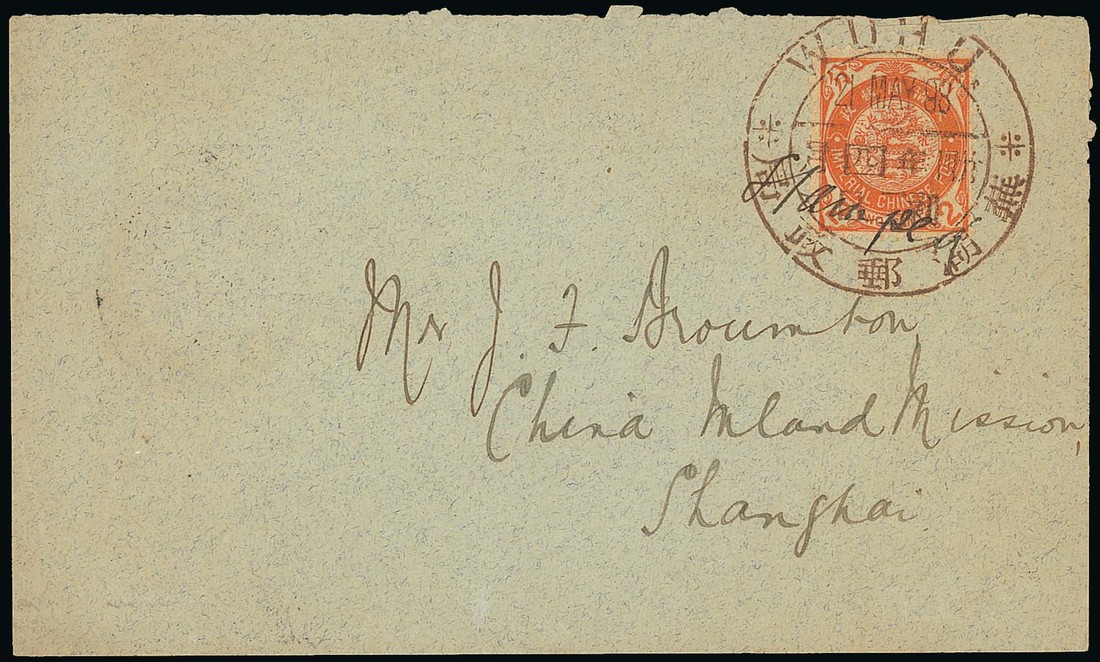 WUHU
21 MAY 98
蕪湖郵政局
IMPERIAL CHINESE POST
2
2
2
Mr J. F. Broumton,
China Inland Mission,
Shanghai